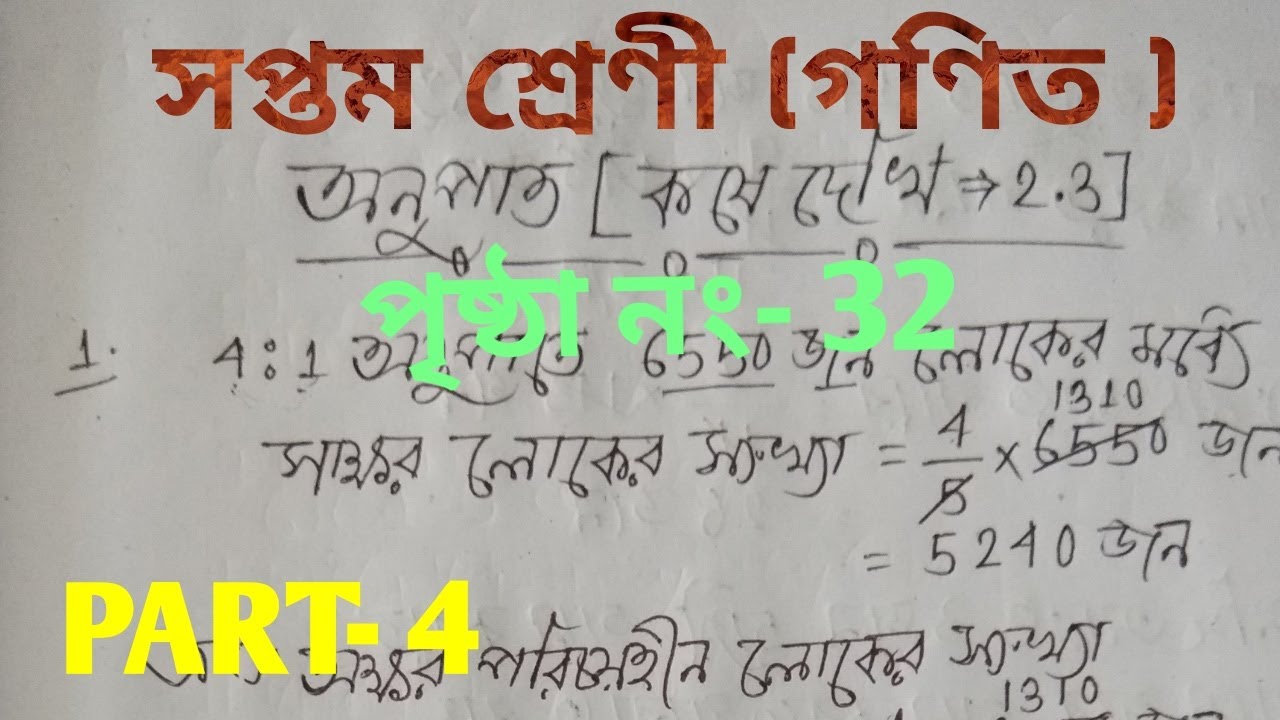 সপ্তম শ্রেণী (গণিত )
অনুপাত [কষে দেখি ⇒ 2.3]
পৃষ্ঠা নং- 32
1. 4:1 অনুপাতে 6550 জন লোকের মধ্যে
1310
সাক্ষর লোকের সংখ্যা = 4/5 × 6550 জন
= 5240 জন
PART- 4
অক্ষর পরিচয়হীন লোকের সংখ্যা
1310